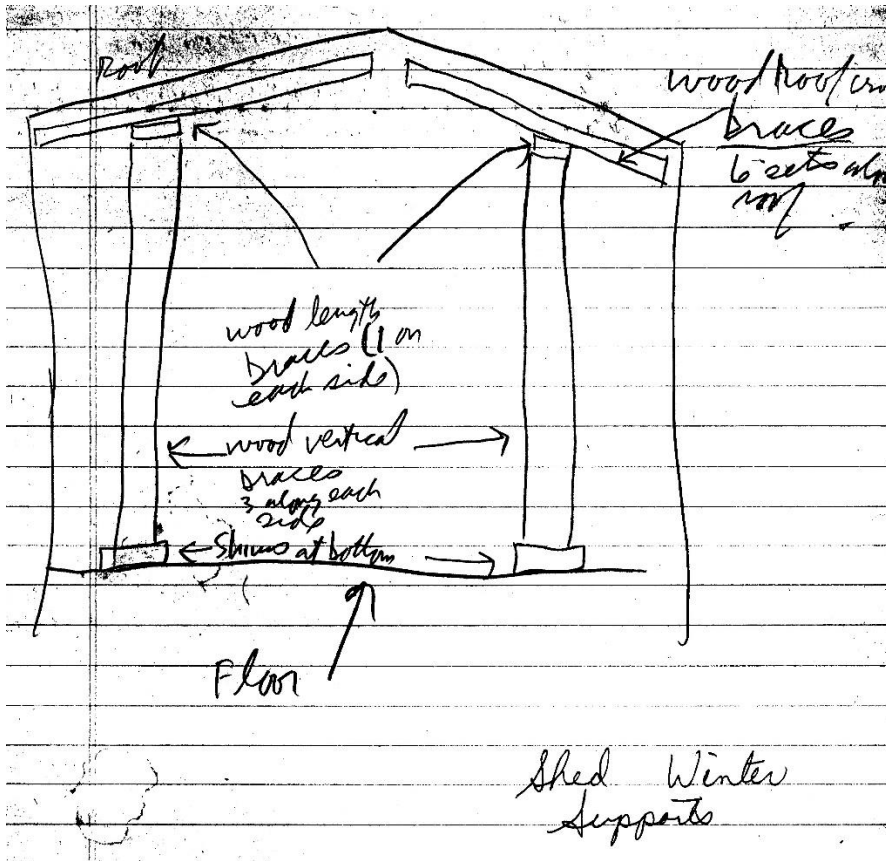 Roof
wood Roof cro
braces
6 sets alon
roof
wood length
braces (1 on
each side)
wood vertical
braces
3 along each
side
Shims at bottom
Floor
Shed Winter
Supports